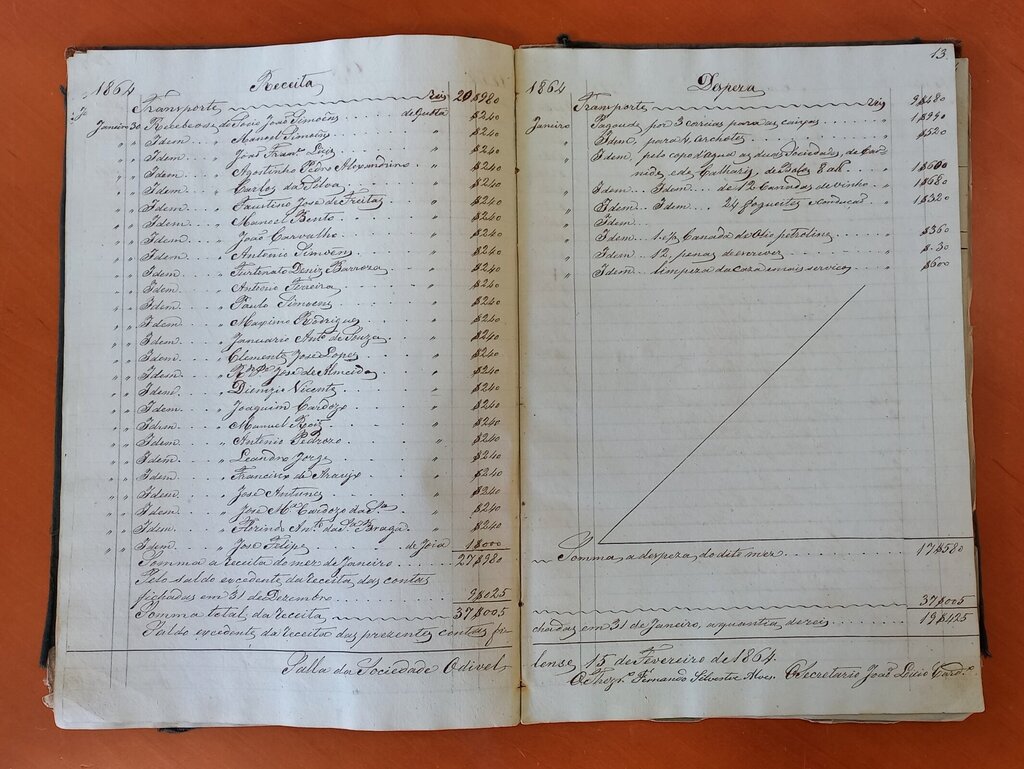 1864 Receita
Transporte reis 20$980
Janeiro 30 Recebeose do Socio João Simoens de Quota $240
" " Idem " Manoel Simoens " $240
" " Idem " João Franco Luiz " $240
" " Idem " Agostinho Pedro Alexandrino " $240
" " Idem " Carlos da Silva " $240
" " Idem " Faustino Jose de Freitas " $240
" " Idem " Manoel Bento " $240
" " Idem " João Carvalho " $240
" " Idem " Antonio Simoens " $240
" " Idem " Furtunato Deniz Barroza " $240
" " Idem " Antonio Ferreira " $240
" " Idem " Paulo Simoens " $240
" " Idem " Maximo Rodrigues " $240
" " Idem " Januario Anto de Souza " $240
" " Idem " Clemente Jose Lopes " $240
" " Idem " Jose de Almeida " $240
" " Idem " Dionizio Vicente " $240
" " Idem " Joaquim Cardozo " $240
" " Idem " Manuel Roiz " $240
" " Idem " Antonio Pedrozo " $240
" " Idem " Leandro Jorge " $240
" " Idem " Francisco de Araujo " $240
" " Idem " Jose Antunes " $240
" " Idem " Jose Ma Cardozo da Sa " $240
" " Idem " Florindo Anto da Braga " $240
" " Idem " Jose Felipe de Joia 1$000
Somma a receita do mez de Janeiro 27$980
Pelo saldo excedente da receita das contas
fichadas em 31 de Dezembro 9$025
Somma total da receita 37$005
Saldo excedente da receita das prezentes contas fi-
Salla da Sociedade Odivel-
13
1864 Despeza
Transporte reis 9$480
Janeiro Pagouse por 3 correias para as caixas 1$990
" Idem para 4 Archotes " $520
" Idem pelo copo d'agua as duas Sociedades de Car-
nide e de Calhariz, de Bolos 8 ab " 1$600
" Idem Idem de 12 Canadas de vinho " 1$680
" Idem Idem 24 fogueites conducão " 1$320
" Idem
" Idem 1 e ½ Canada de Olio petroline " $360
" Idem 12 penas de escrever " $30
" Idem limpeza da caza e mais serviços " $600
Somma a despeza do dito mez 17$580
37$005
chadas em 31 de Janeiro, a quantia de reis 19$425
lense, 15 de Fevereiro de 1864.
O Thezro Fernando Silvestre Alves. O Secretario João Lucio Cardo